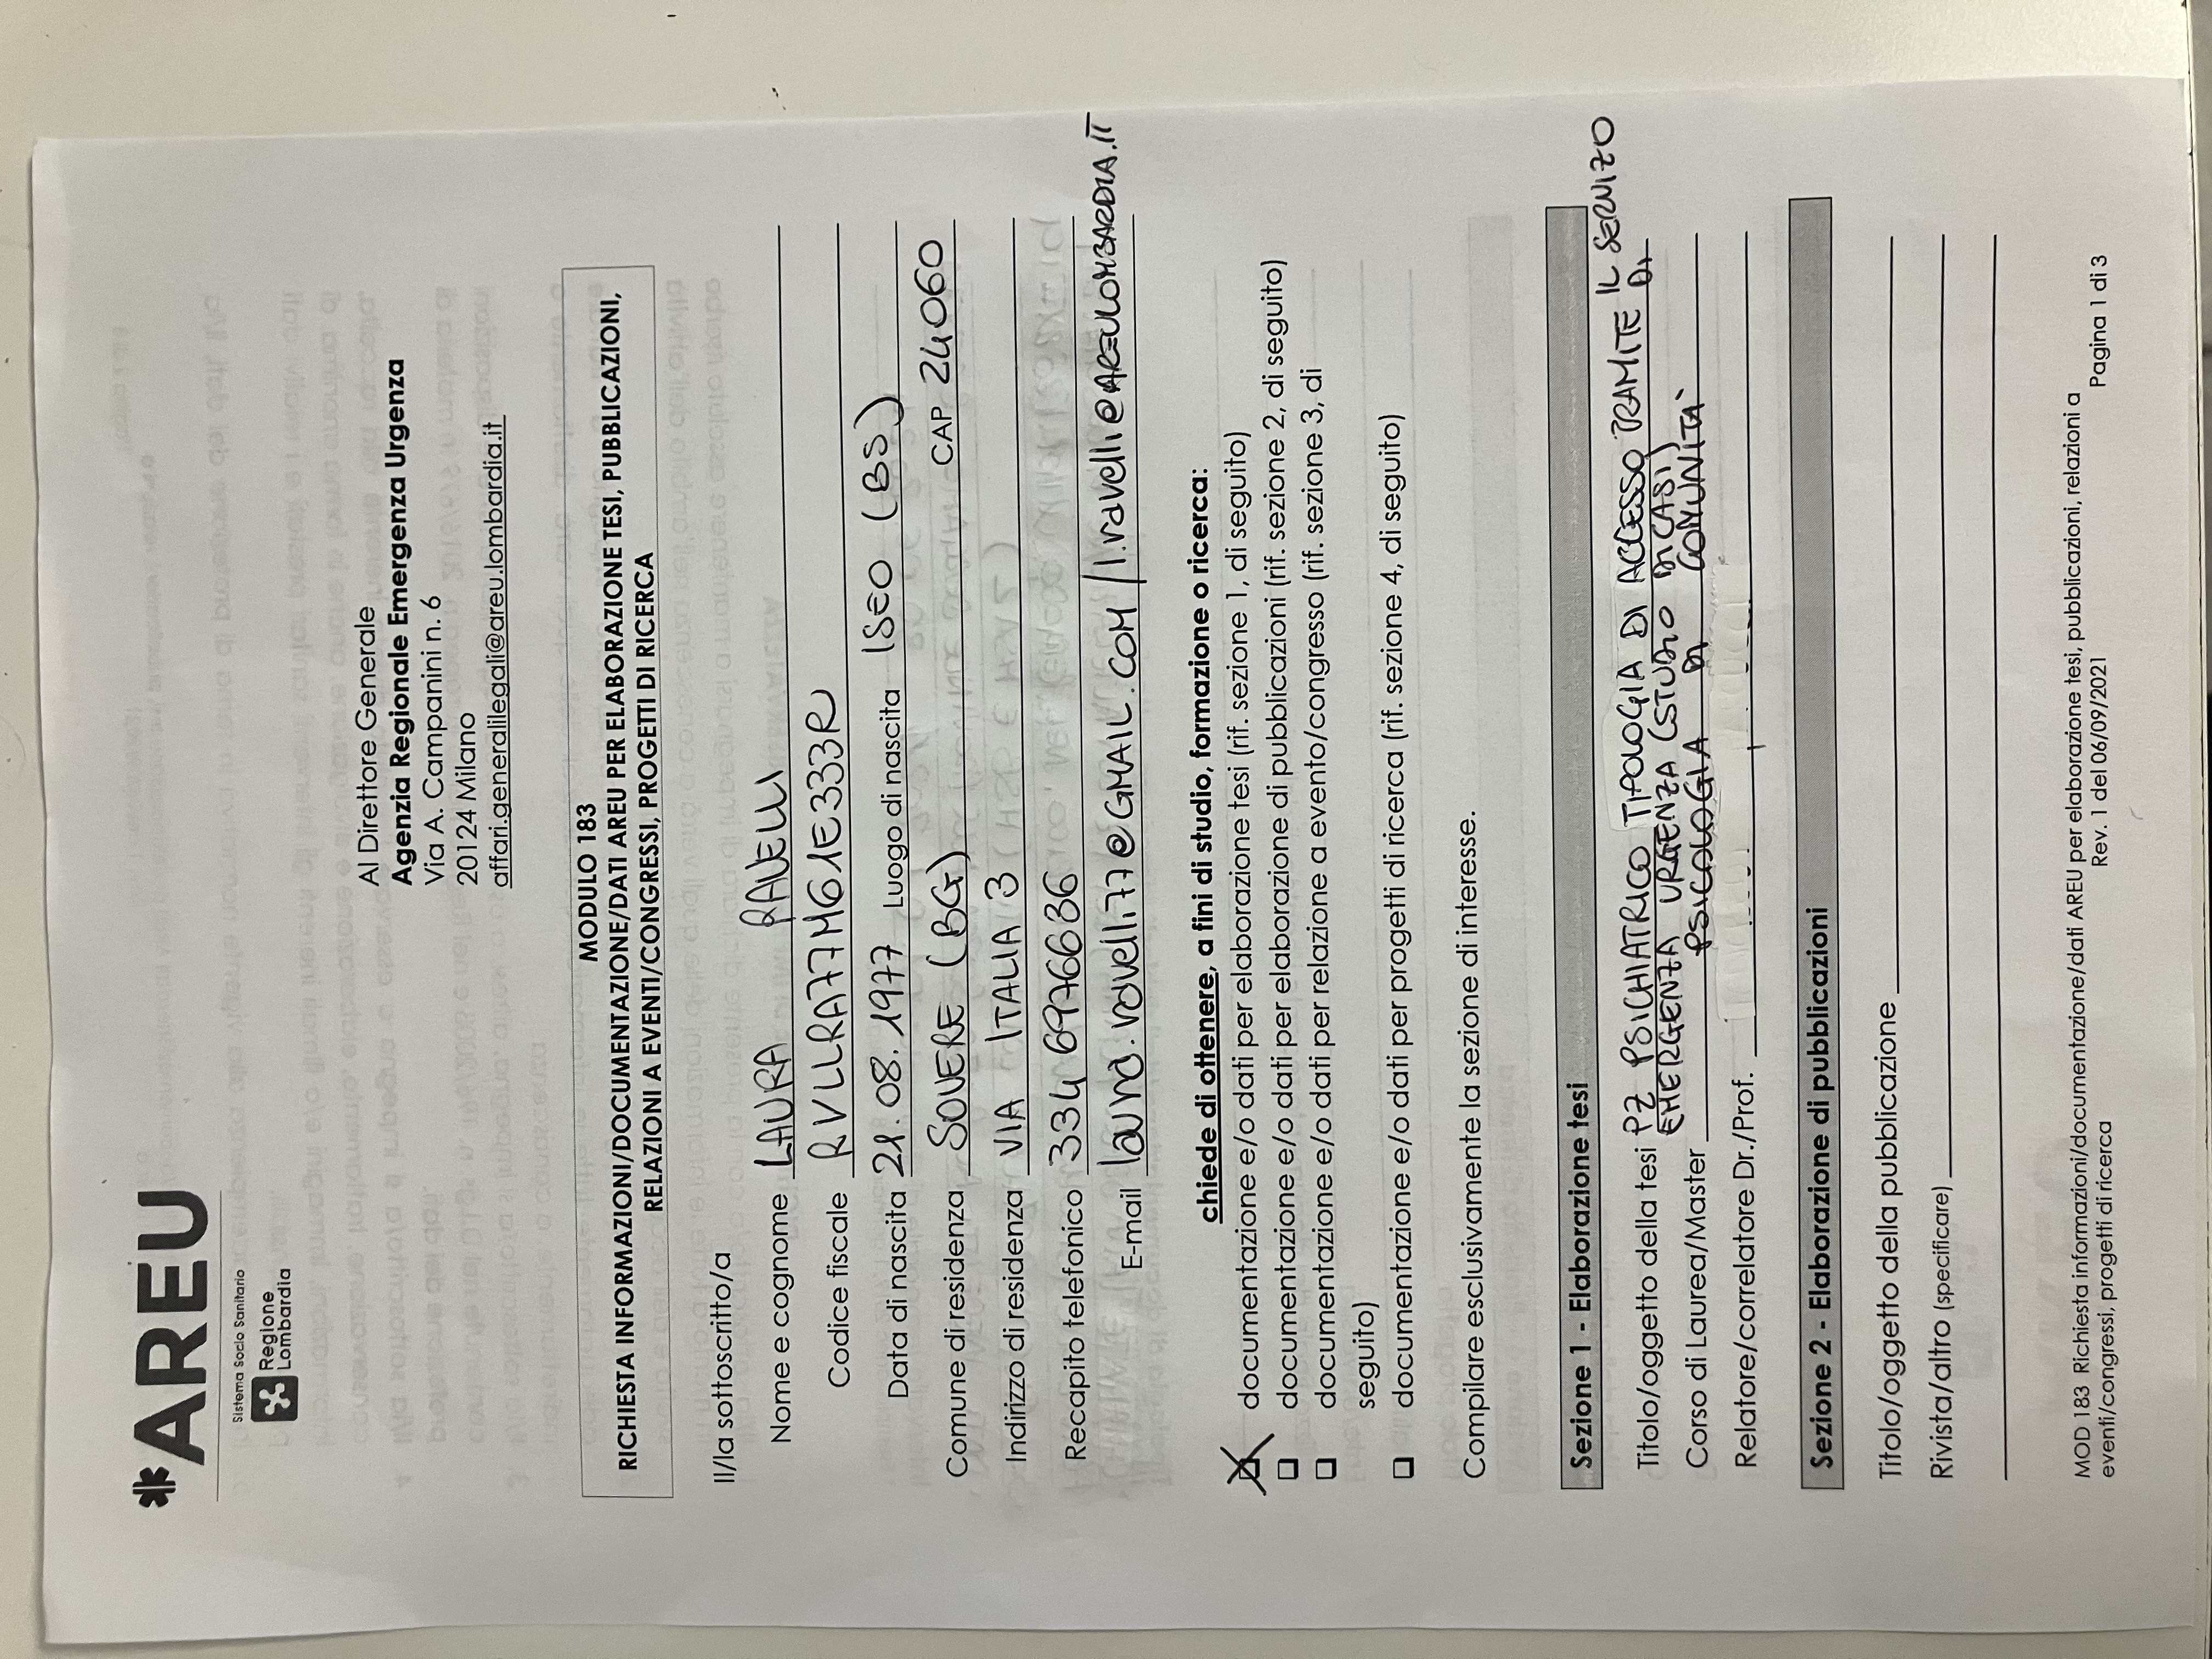 *AREU
Sistema Socio Sanitario
Regione
Lombardia
Al Direttore Generale
Agenzia Regionale Emergenza Urgenza
Via A. Campanini n. 6
20124 Milano
affari.generalilegali@areu.lombardia.it
MODULO 183
RICHIESTA INFORMAZIONI/DOCUMENTAZIONE/DATI AREU PER ELABORAZIONE TESI, PUBBLICAZIONI,
RELAZIONI A EVENTI/CONGRESSI, PROGETTI DI RICERCA
Il/la sottoscritto/a
Nome e cognome LAURA RAVELLI
Codice fiscale RVLLRA77M61E333R
Data di nascita 21.08.1977 Luogo di nascita ISEO (BS)
Comune di residenza SOVERE (BG) CAP 24060
Indirizzo di residenza VIA ITALIA 3
Recapito telefonico 334 6976636
E-mail laura.ravelli77@GMAIL.COM / l.ravelli@AREULOMBARDIA.IT
chiede di ottenere, a fini di studio, formazione o ricerca:
documentazione e/o dati per elaborazione tesi (rif. sezione 1, di seguito)
documentazione e/o dati per elaborazione di pubblicazioni (rif. sezione 2, di seguito)
documentazione e/o dati per relazione a evento/congresso (rif. sezione 3, di
seguito)
documentazione e/o dati per progetti di ricerca (rif. sezione 4, di seguito)
Compilare esclusivamente la sezione di interesse.
Sezione 1 - Elaborazione tesi
Titolo/oggetto della tesi PZ PSICHIATRICO TIPOLOGIA DI ACCESSO TRAMITE IL SERVIZO DI
EMERGENZA URGENZA (STUDIO DI CASI)
Corso di Laurea/Master PSICOLOGIA DI COMUNITA'
Relatore/correlatore Dr./Prof.
Sezione 2 - Elaborazione di pubblicazioni
Titolo/oggetto della pubblicazione
Rivista/altro (specificare)
MOD 183 Richiesta informazioni/documentazione/dati AREU per elaborazione tesi, pubblicazioni, relazioni a
eventi/congressi, progetti di ricerca Rev. 1 del 06/09/2021 Pagina 1 di 3